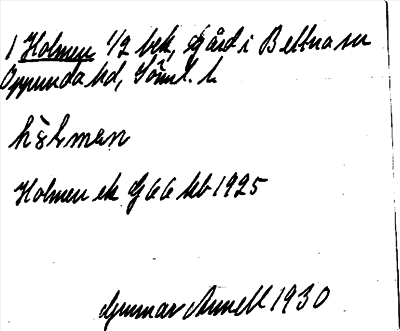 1 Holmen 1/2 bek, gård i Bettna sn
Oppunda hd, Söml. l.
hɔ̀lman
Holmen ek G 66 kb 1925
Gunnar Arnell 1930